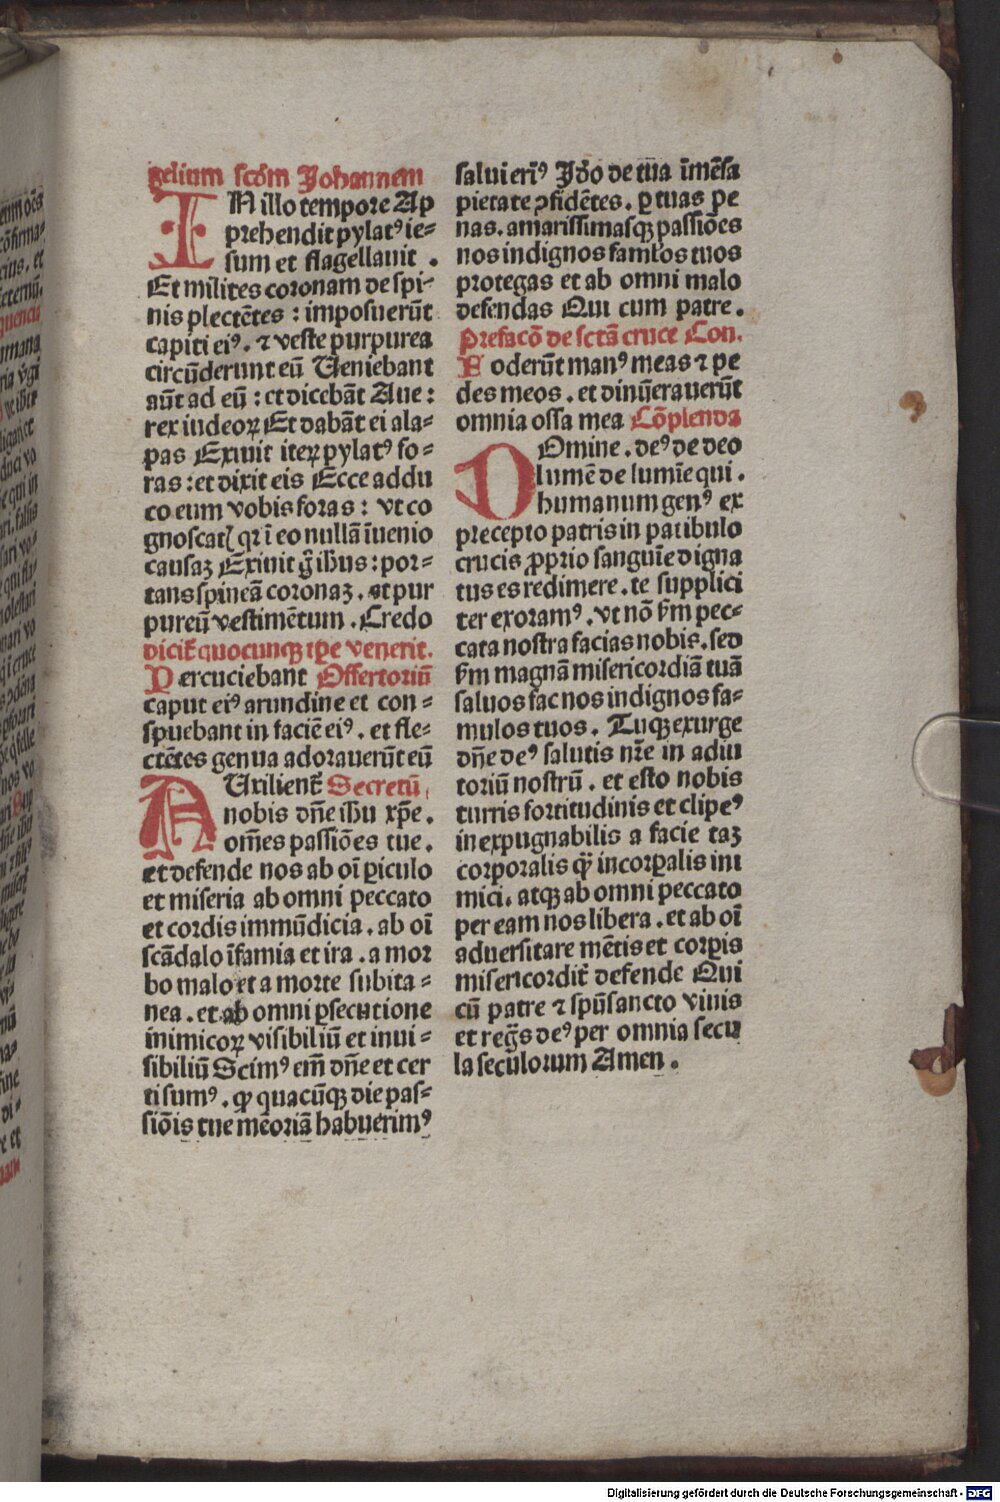 gelium scďm Johannem
IN illo tempore Ap
prehendit pylatꝰ ie⸗
sum et flagellauit .
Et milites coronam de spi⸗
nis plectētes : imposuerūt
capiti eiꝰ . ⁊ veste purpurea
circūderunt eū Veniebant
aūt ad eū : et dicebāt Aue :
rex iudeoꝝ Et dabāt ei ala⸗
pas Exiuit iteꝝ pylatꝰ fo⸗
ras : et dixit eis Ecce addu
co eum vobis foras : vt co
gnoscatꝭ qꝛ ī eo nullā īuenio
causaꝫ Exiuit g̊ ihūs : por⸗
tans spineā coronaꝫ . et pur
pureū vestimētum . Credo
dicit̄ quocunqꝫ ip̄e venerit.
Percuciebant Offertoriū
caput eiꝰ arundine et con⸗
spuebant in faciē eiꝰ . et fle⸗
ctētes genua adorauerūt eū
AUxilient̄ Secretū
nobis dn̄e ihū xp̄e .
om̄es passiōes tue .
et defende nos ab oī ꝑiculo
et miseria ab omni peccato
et cordis immūdicia . ab oī
scādalo īfamia et ira . a mor
bo malo et a morte subita⸗
nea . et ab omni ꝑsecutione
inimicoꝝ visibiliū et inui⸗
sibiliū Scimꝰ em̄ dn̄e et cer
ti sumꝰ . ꝙ quacūqꝫ die pas⸗
siōis tue mēoriā habuerimꝰ
salui erīꝰ Jďo de tua īmēsa
pietate ꝯfidētes . ꝑ tuas pe
nas . amarissimasqꝫ passiōes
nos indignos famlos tuos
protegas et ab omni malo
defendas Qui cum patre .
Prefacō de sctā cruce Con.
Foderūt manꝰ meas ⁊ pe
des meos . et dinūerauerūt
omnia ossa mea Cōplenda
DOmine . deꝰ de deo
lumē de lumīe qui .
humanum genꝰ ex
precepto patris in patibulo
crucis ꝓprio sanguīe digna
tus es redimere . te supplici
ter exoramꝰ . vt nō ẜm pec⸗
cata nostra facias nobis . sed
ẜm magnā misericordiā tuā
saluos fac nos indignos fa⸗
mulos tuos . Tuqꝫ exurge
dn̄e deꝰ salutis nr̄e in adiu
toriū nostrū . et esto nobis
turris fortitudinis et clipeꝰ
inexpugnabilis a facie taꝫ
corporalis qͣꝫ incorꝑalis ini
mici . atqꝫ ab omni peccato
per eam nos libera . et ab oī
aduersitare mētis et corꝑis
misericordit̄ defende Qui
cū patre ⁊ spūsancto viuis
et regn̄s deꝰ per omnia secu
la seculorum Amen .
Digitalisierung gefördert durch die Deutsche Forschungsgemeinschaft - DFG